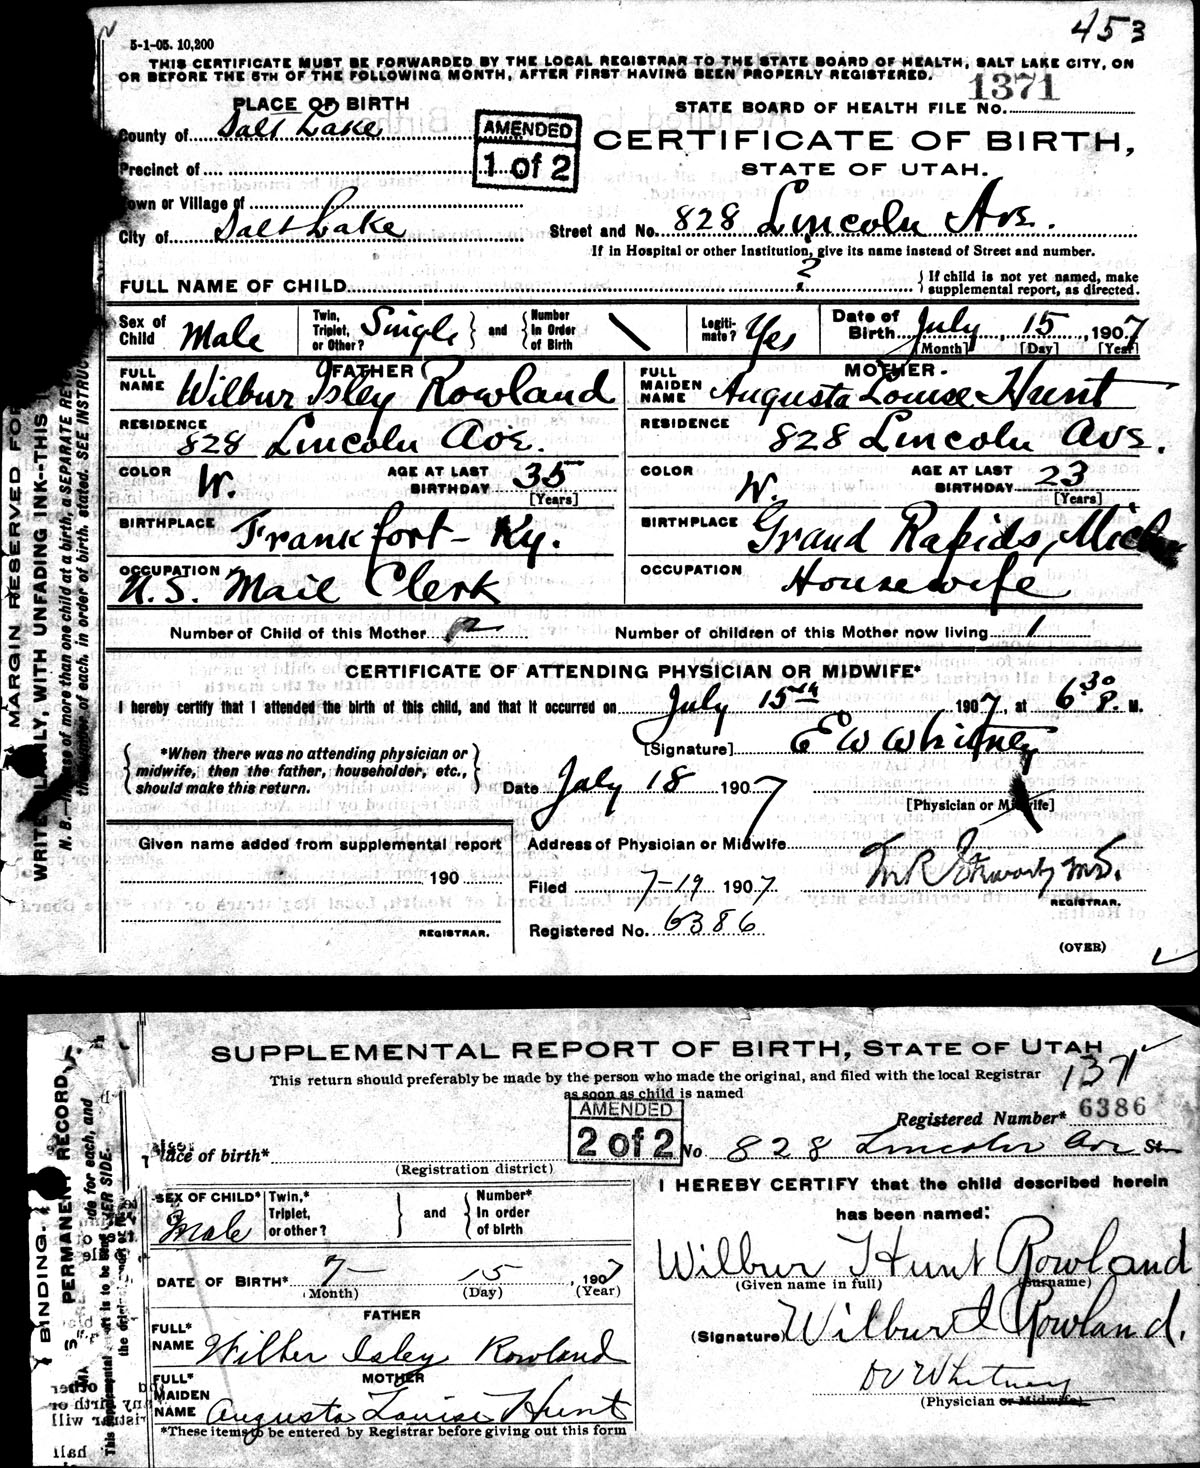 453
5-1-05. 10,200
THIS CERTIFICATE MUST BE FORWARDED BY THE LOCAL REGISTRAR TO THE STATE BOARD OF HEALTH, SALT LAKE CITY, ON
OR BEFORE THE 5TH OF THE FOLLOWING MONTH, AFTER FIRST HAVING BEEN PROPERLY REGISTERED.
PLACE OF BIRTH
STATE BOARD OF HEALTH FILE No. 1371
County of Salt Lake
AMENDED
1 of 2
CERTIFICATE OF BIRTH,
STATE OF UTAH.
Precinct of
Town or Village of
City of Salt Lake
Street and No. 828 Lincoln Ave.
If in Hospital or other Institution, give its name instead of Street and number.
FULL NAME OF CHILD ?
If child is not yet named, make
supplemental report, as directed.
Sex of Child Male
Twin, Triplet, or Other? Single and Number In Order of Birth
Legiti-mate? Yes
Date of Birth July 15, 1907
[Month] [Day] [Year]
FATHER
FULL NAME Wilbur Isley Rowland
MOTHER.
FULL MAIDEN NAME Augusta Louise Hunt
RESIDENCE 828 Lincoln Ave.
RESIDENCE 828 Lincoln Ave.
COLOR W. AGE AT LAST BIRTHDAY 35 [Years]
COLOR W. AGE AT LAST BIRTHDAY 23 [Years]
BIRTHPLACE Frankfort - Ky.
BIRTHPLACE Grand Rapids, Mich
OCCUPATION U.S. Mail Clerk
OCCUPATION Housewife
Number of Child of this Mother 2
Number of children of this Mother now living 1
CERTIFICATE OF ATTENDING PHYSICIAN OR MIDWIFE*
I hereby certify that I attended the birth of this child, and that it occurred on July 15th 1907, at 6 30 P. M.
*When there was no attending physician or
midwife, then the father, householder, etc.,
should make this return.
[Signature] E W Whitney
Date July 18 1907
[Physician or Midwife]
Given name added from supplemental report
190
REGISTRAR.
Address of Physician or Midwife
Filed 7-19 1907
REGISTRAR.
Registered No. 6386
(OVER)
MARGIN RESERVED FOR
WRITE PLAINLY, WITH UNFADING INK--THIS
N. B.—In case of more than one child at a birth, a SEPARATE RET
number of each, in order of birth, stated. SEE INSTRUC
SUPPLEMENTAL REPORT OF BIRTH, STATE OF UTAH
This return should preferably be made by the person who made the original, and filed with the local Registrar
as soon as child is named
1371
AMENDED
2 of 2
Registered Number* 6386
Place of birth*
(Registration district)
No 828 Lincoln Ave St.
SEX OF CHILD* Male
Twin,* Triplet, or other? and Number* In order of birth
DATE OF BIRTH* 7- 15, 1907
(Month) (Day) (Year)
FATHER
FULL* NAME Wilber Isley Rowland
MOTHER
FULL* MAIDEN NAME Augusta Louise Hunt
*These items to be entered by Registrar before giving out this form
I HEREBY CERTIFY that the child described herein
has been named:
Wilbur Hunt Rowland
(Given name in full) (Surname)
(Signature) Wilbur I Rowland.
Dr Whitney
(Physician or Midwife)
BINDING.
PERMANENT RECORD